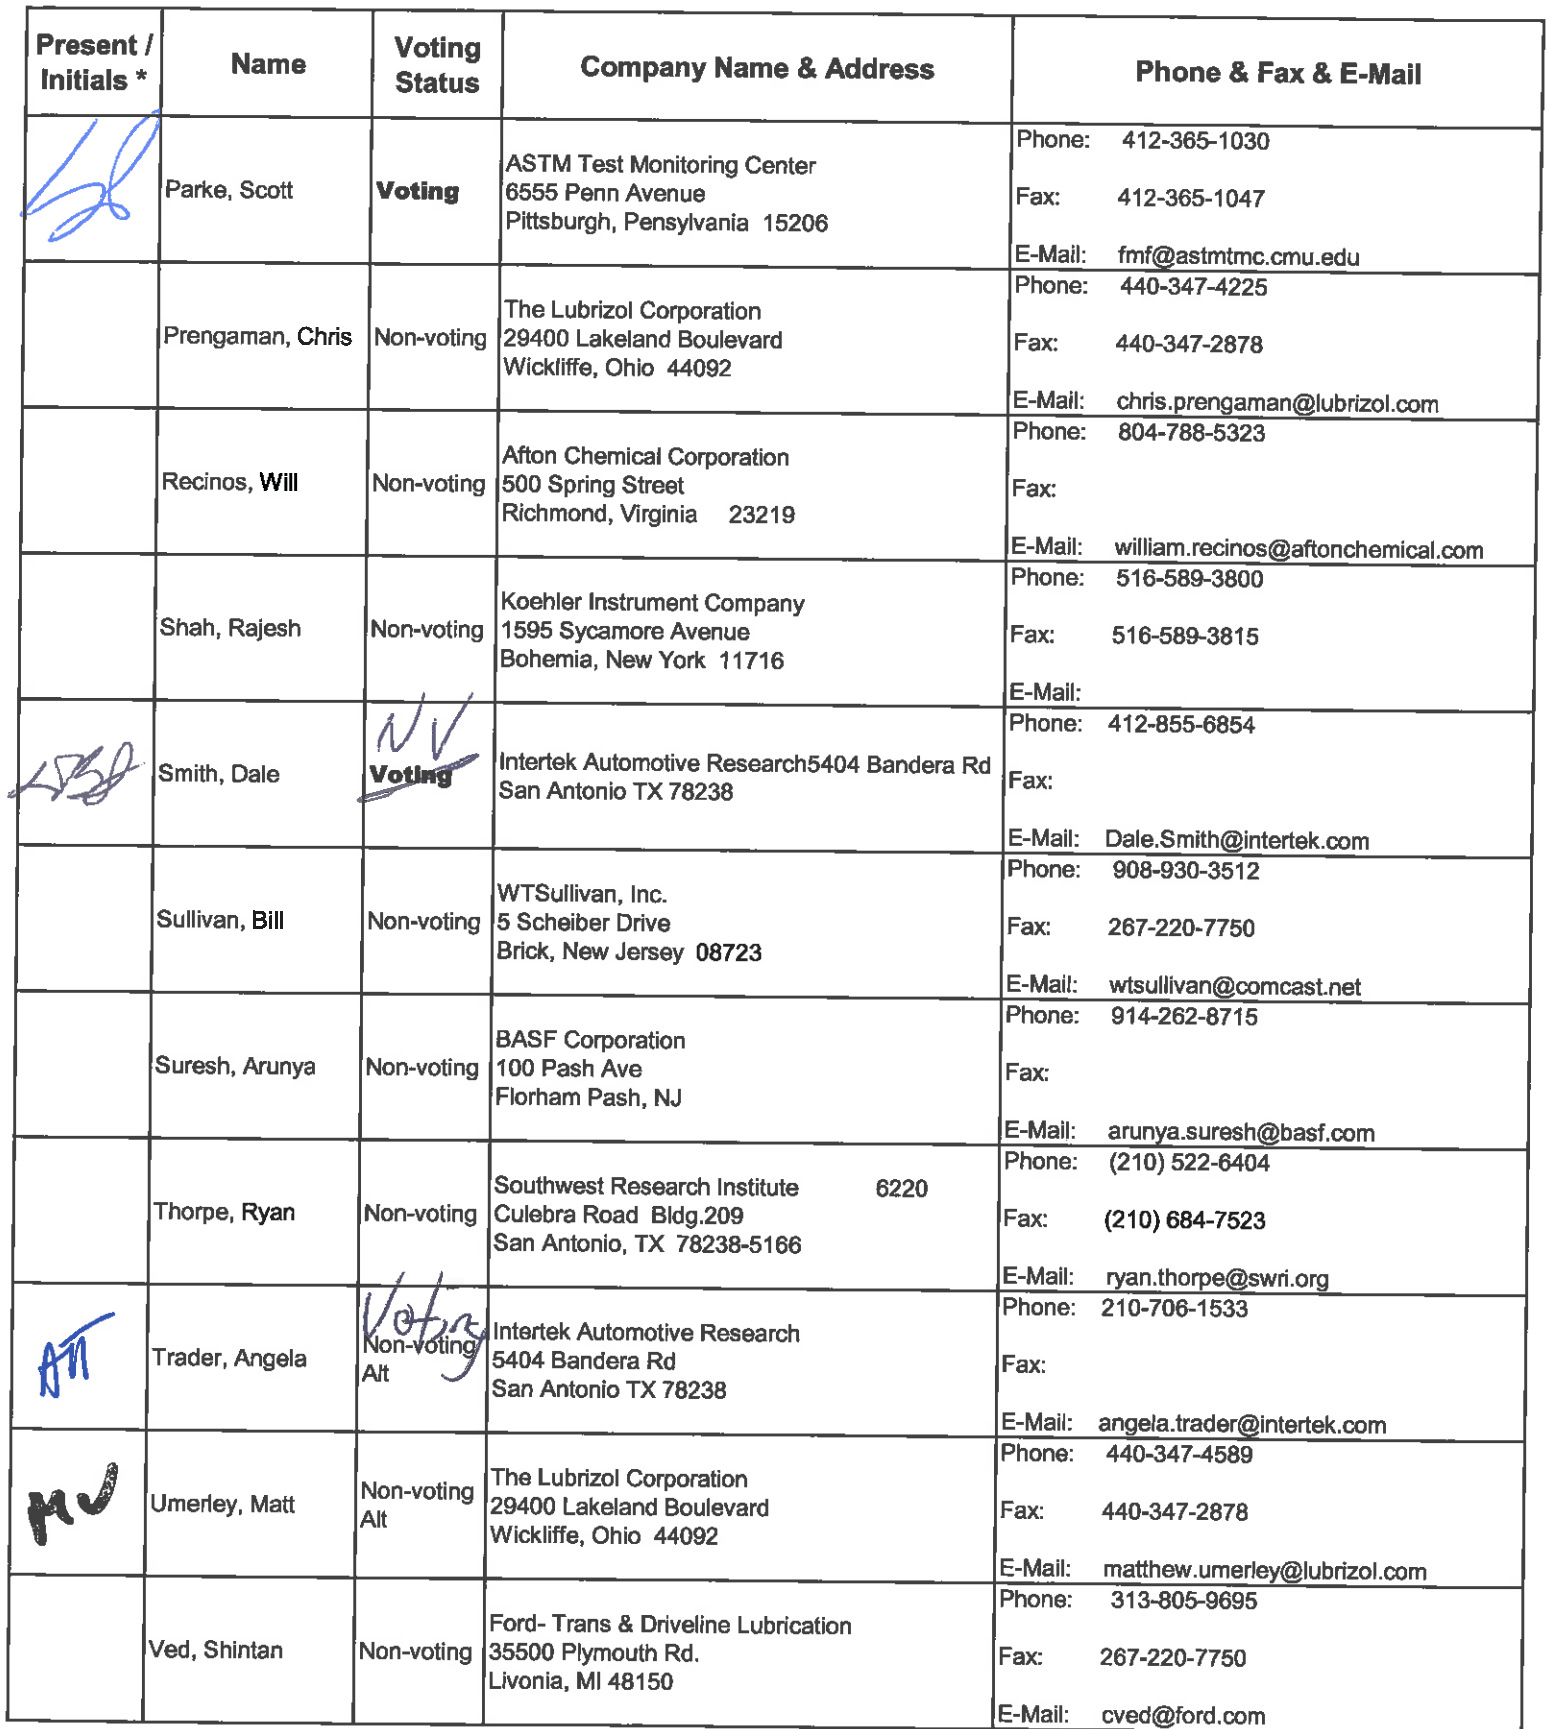 Present / Initials *
Name
Voting Status
Company Name & Address
Phone & Fax & E-Mail
Parke, Scott
Voting
ASTM Test Monitoring Center
6555 Penn Avenue
Pittsburgh, Pensylvania 15206
Phone: 412-365-1030
Fax: 412-365-1047
E-Mail: fmf@astmtmc.cmu.edu
Prengaman, Chris
Non-voting
The Lubrizol Corporation
29400 Lakeland Boulevard
Wickliffe, Ohio 44092
Phone: 440-347-4225
Fax: 440-347-2878
E-Mail: chris.prengaman@lubrizol.com
Recinos, Will
Non-voting
Afton Chemical Corporation
500 Spring Street
Richmond, Virginia 23219
Phone: 804-788-5323
Fax:
E-Mail: william.recinos@aftonchemical.com
Shah, Rajesh
Non-voting
Koehler Instrument Company
1595 Sycamore Avenue
Bohemia, New York 11716
Phone: 516-589-3800
Fax: 516-589-3815
E-Mail:
Smith, Dale
NV
Voting
Intertek Automotive Research5404 Bandera Rd
San Antonio TX 78238
Phone: 412-855-6854
Fax:
E-Mail: Dale.Smith@intertek.com
Sullivan, Bill
Non-voting
WTSullivan, Inc.
5 Scheiber Drive
Brick, New Jersey 08723
Phone: 908-930-3512
Fax: 267-220-7750
E-Mail: wtsullivan@comcast.net
Suresh, Arunya
Non-voting
BASF Corporation
100 Pash Ave
Florham Pash, NJ
Phone: 914-262-8715
Fax:
E-Mail: arunya.suresh@basf.com
Thorpe, Ryan
Non-voting
Southwest Research Institute 6220
Culebra Road Bldg.209
San Antonio, TX 78238-5166
Phone: (210) 522-6404
Fax: (210) 684-7523
E-Mail: ryan.thorpe@swri.org
AT
Trader, Angela
Voting
Non-voting
Alt
Intertek Automotive Research
5404 Bandera Rd
San Antonio TX 78238
Phone: 210-706-1533
Fax:
E-Mail: angela.trader@intertek.com
MU
Umerley, Matt
Non-voting
Alt
The Lubrizol Corporation
29400 Lakeland Boulevard
Wickliffe, Ohio 44092
Phone: 440-347-4589
Fax: 440-347-2878
E-Mail: matthew.umerley@lubrizol.com
Ved, Shintan
Non-voting
Ford- Trans & Driveline Lubrication
35500 Plymouth Rd.
Livonia, MI 48150
Phone: 313-805-9695
Fax: 267-220-7750
E-Mail: cved@ford.com